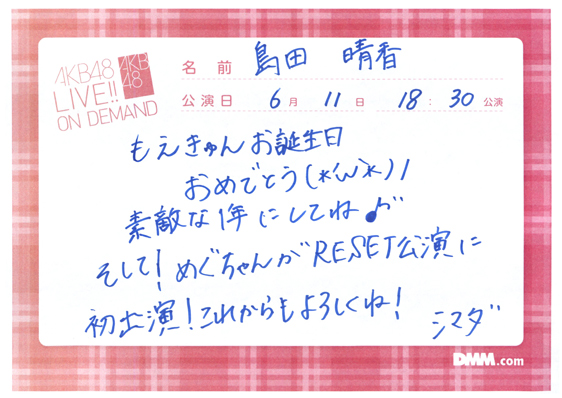 AKB48
LIVE!!
ON DEMAND
AKB
48
名前 島田 晴香
公演日 6月 11日 18:30公演
もえきゅんお誕生日
おめでとう(*´ω`*)ﾉ
素敵な1年にしてね♪
そして!めぐちゃんがRESET公演に
初出演!これからもよろしくね!
シマダ
DMM.com